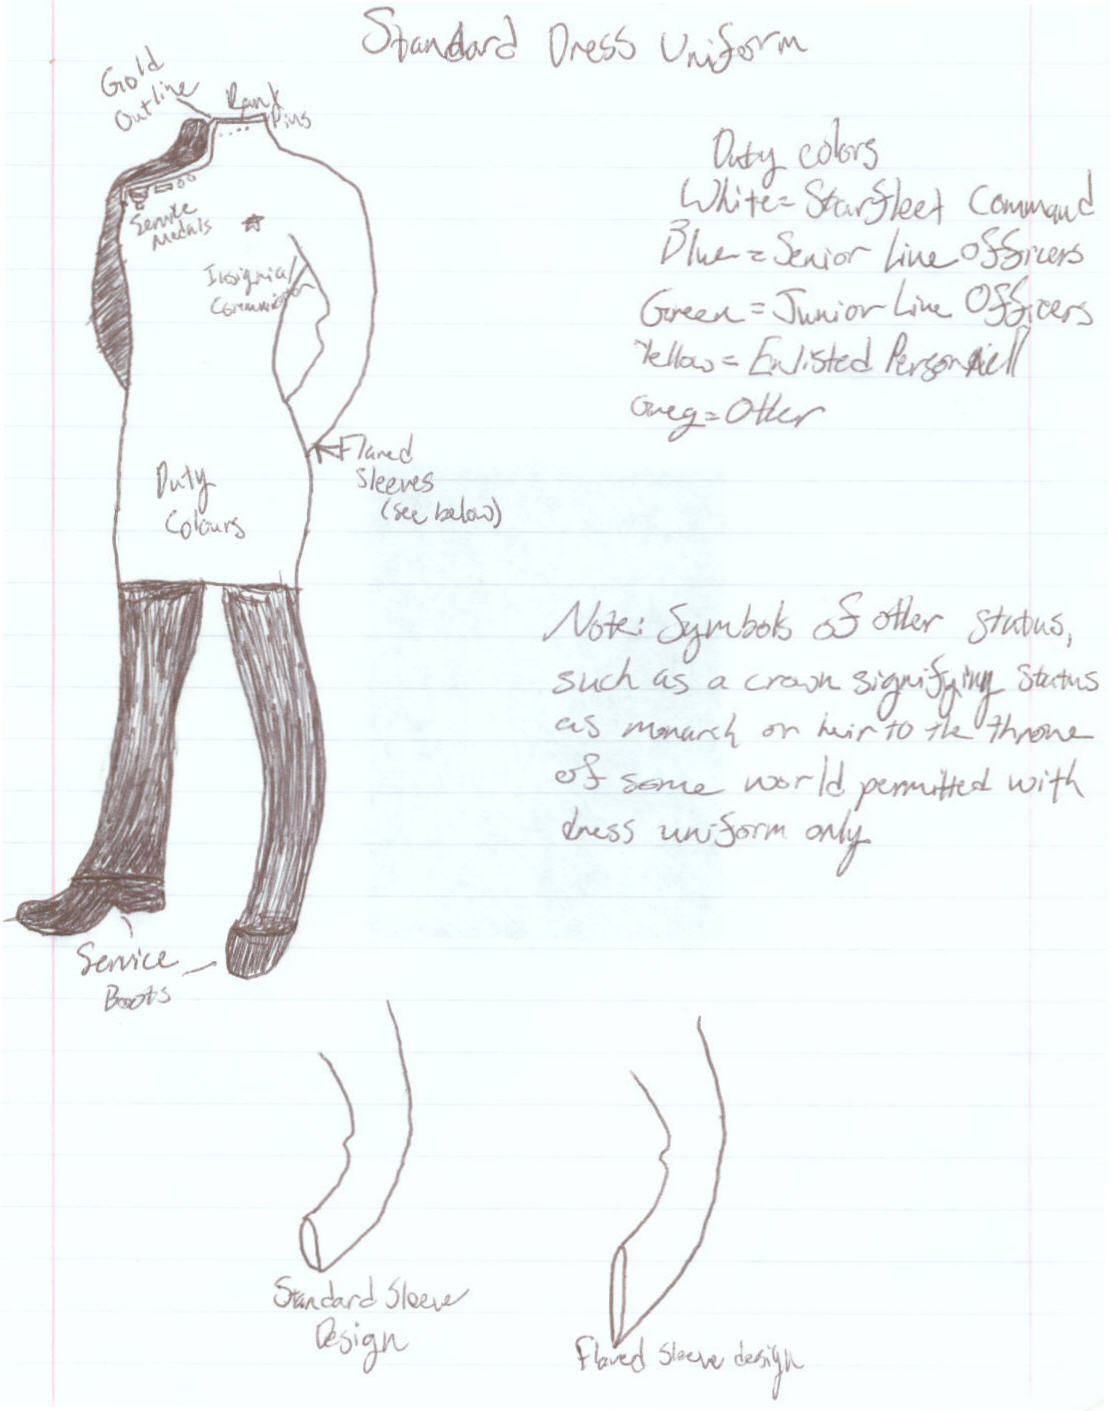 Standard Dress Uniform
Gold
Outline
Rank
Pins
Service
Medals
Insignia/
Communicator
Duty
Colours
Flared
Sleeves
(see below)
Service
Boots
Duty colors
White = Starfleet Command
Blue = Senior Line Officers
Green = Junior Line Officers
Yellow = Enlisted Personnell
Grey = Other
Note: Symbols of other status,
such as a crown signifying status
as monarch or heir to the throne
of some world permitted with
dress uniform only
Standard Sleeve
Design
Flared Sleeve design